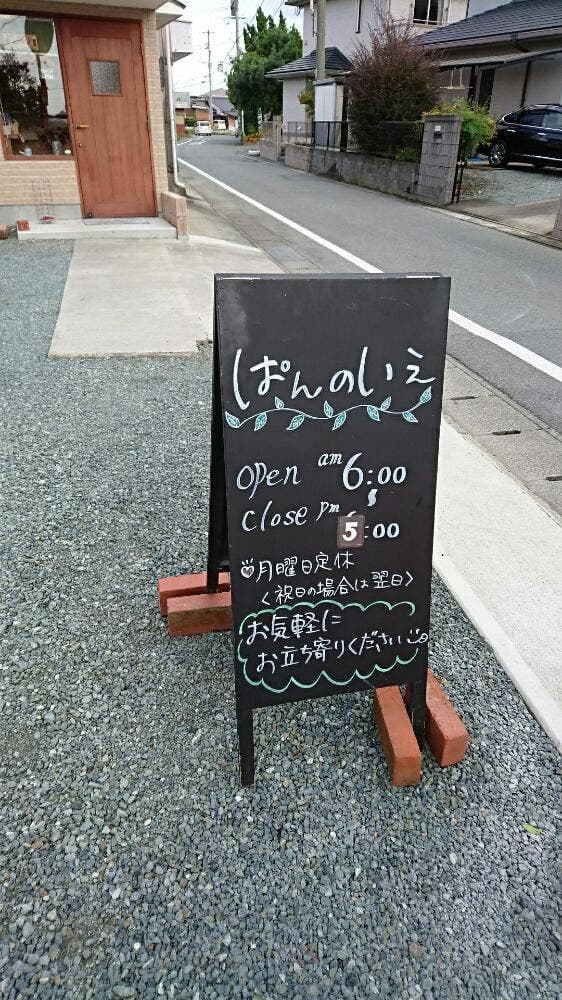 ぱんのいえ
open am 6:00
close pm 5:00
月曜日定休
<祝日の場合は翌日>
お気軽に
お立ち寄りください